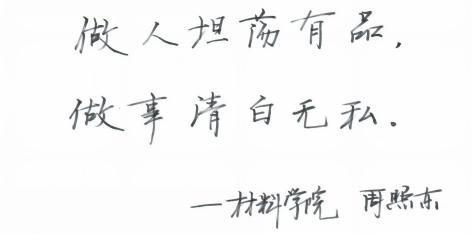 做人坦荡有品，
做事清白无私。
——材料学院 周照东